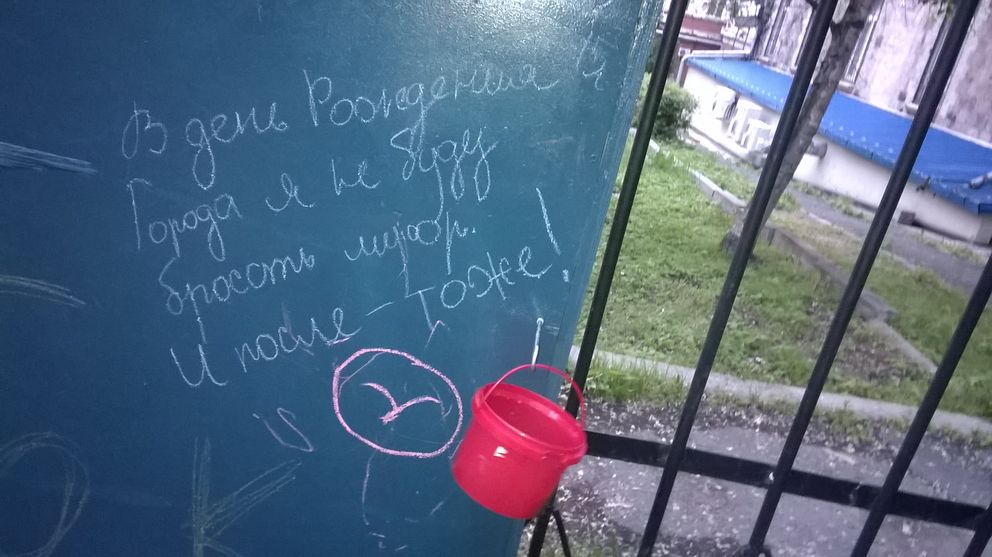 В день Рождения
Города я не буду
бросать мусор.
И после - Тоже!